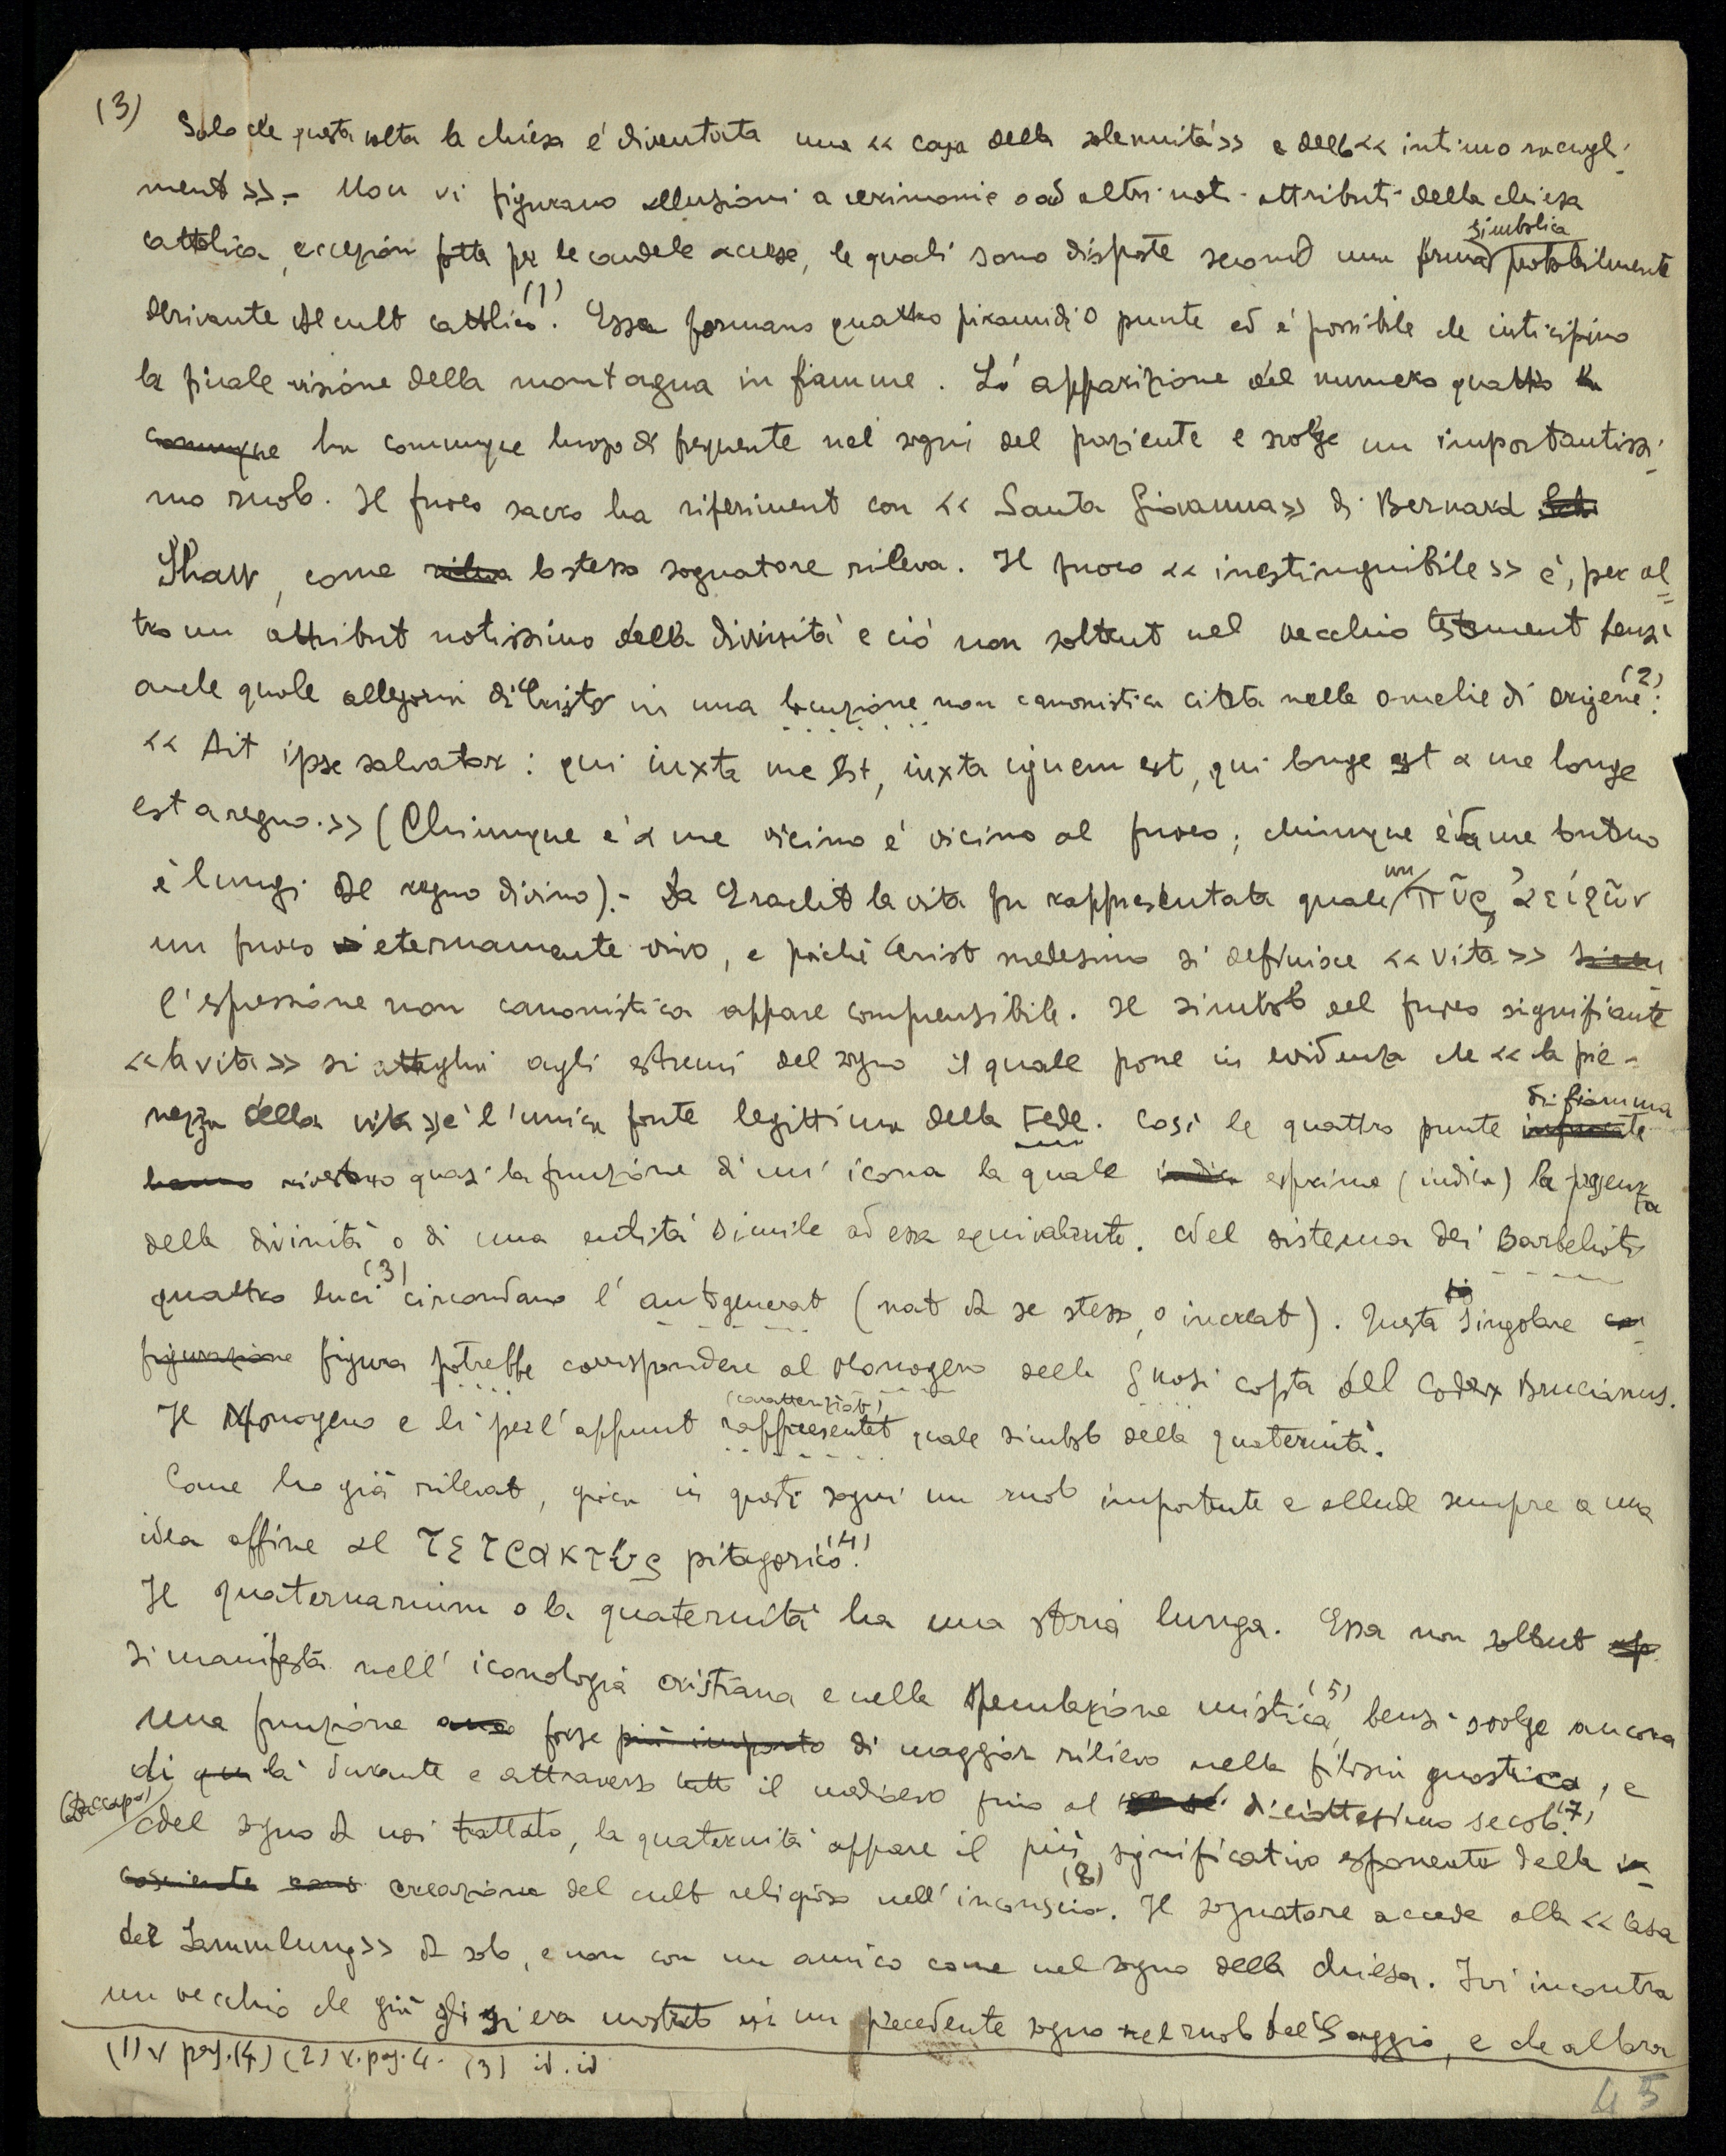 (3) Solo che questa volta la chiesa é diventata una << casa della solennitá>> e dello << intimo raccogli-
mento >>.- Non vi figurano allusioni a cerimonie o ad altri noti attributi della chiesa
simbolica
cattolica, eccezion fatta per le candele accese, le quali sono disposte secondo una forma probabilmente
derivante dal culto cattolico (1). Esse formano quattro piramidi o punte ed é possibile che anticipino
la finale visione della montagna in fiamme. L'apparizione del numero quattro ha
comunque ha comunque luogo di frequente nei sogni del paziente e svolge un importantissi-
mo ruolo. Il fuoco sacro ha riferimento con << Santa Giovanna>> di Bernard Sch
Shaw, come rileva lo stesso sognatore rileva. Il fuoco << inestinguibile >> é, per al=
tro un attributo notissimo della divinitá e ció non soltanto nel vecchio testamento bensi
anche quale allegoria di Cristo in una locuzione non canonistica citata nelle omelie di Origene (2):
<< Ait ipse salvator: qui iuxta me est, iuxta ignem est, qui longe est a me longe
est a regno.>> (Chiunque é a me vicino é vicino al fuoco; chiunque é da me lontano
é lungi dal regno divino).- Da Eraclito la vita fu rappresentata quale un πῦρ ἀείζῶν
un fuoco eternamente vivo, e poiché Cristo medesimo si definisce << vita >>
l'espressione non canonistica appare comprensibile. Il simbolo del fuoco significante
<< la vita >> si attaglia agli estremi del sogno il quale pone in evidenza che << la pie-
di fiamma
nezza della vita >> é l'unica fonte legittima della Fede. Cosi le quattro punte infuocate
hanno rivestono quasi la funzione di un' icona la quale indica esprime (indica) la presenza
della divinitá o di una entitá simile ad essa equivalente. Nel sistema dei Barbelioti
quattro luci (3) circondano l' autogenerato (nato da se stesso, o increato). Questa singolare con=
figurazione figura potrebbe corrispondere al Monogeno della gnosi copta del Codex Brucianus.
(caratterizzato)
Il Monogeno e li per l'appunto rappresentato quale simbolo della quaternitá.
Come ho giá rilevato, gioca in questi sogni un ruolo importante e allude sempre a una
idea affine al τετρακτυς pitagorico (4).
Il quaternarium o la quaternitá ha una storia lunga. Essa non soltanto ap
si manifesta nell' iconologia cristiana e nella speculazione mistica (5), bensi svolge ancora
una funzione forse più importo di maggior rilievo nella filosofia gnostica, e
di qua lá durante e attraverso tutto il medioevo fino al diciottesimo secolo (7).
(Daccapo) Nel sogno da noi trattato, la quaternitá appare il più significativo esponente della in=
cosciente creazione del culto religioso nell'inconscio (8). Il sognatore accede alla << Casa
der Sammlung>> da solo, e non con un amico come nel sogno della chiesa. Ivi incontra
un vecchio che giá gli si era mostrato in un precedente sogno nel ruolo del Saggio, e che allora
(1) v pag. (4) (2) v. pag. 4. (3) id. id
45